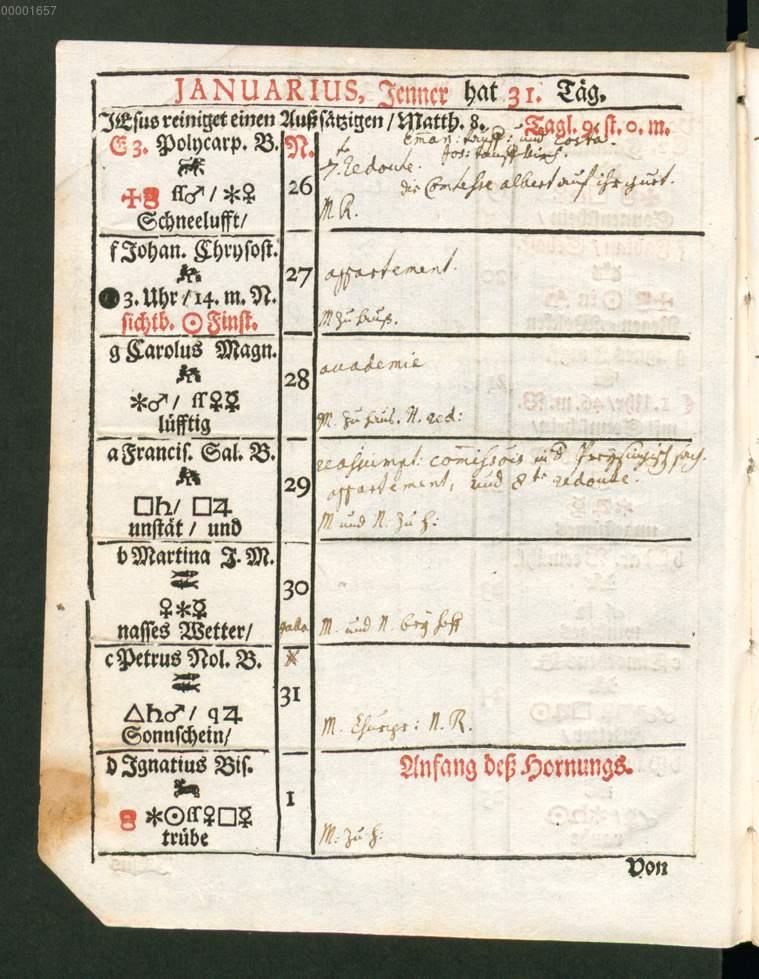 00001657
JANUARIUS, Jenner hat 31. Täg.
JEsus reiniget einen Außsätzigen / Matth. 8. Tagl. 9. st. 0. m.
E 3. Polycarp. B. N.
7. Redoute.
die Comtesse albert auf ihr gurt.
26
☌♂ / ✶♀
M. R.
Schneelufft /
f Johan. Chrysost.
27
appartement.
3. Uhr / 14. m. N.
sichtb. ☉ Finst.
M zu hauß.
g Carolus Magn.
28
academie
✶♂ / ☌♀☿
lüfftig
M. zu hauß. N. red:
a Francis. Sal. B.
29
appartement, und 8te redoute.
□♄ / □♃
unstät / und
M und N: zu h:
b Martina J. M.
30
♀✶☿
nasses Wetter /
gala
M. und N. bey hoff
c Petrus Nol. B.
31
△♄♂ / q♃
Sonnschein /
M. N. R.
d Ignatius Bis.
1
Anfang deß Hornungs.
✶☉☌♀□☿
trübe
M: zu h:
Von